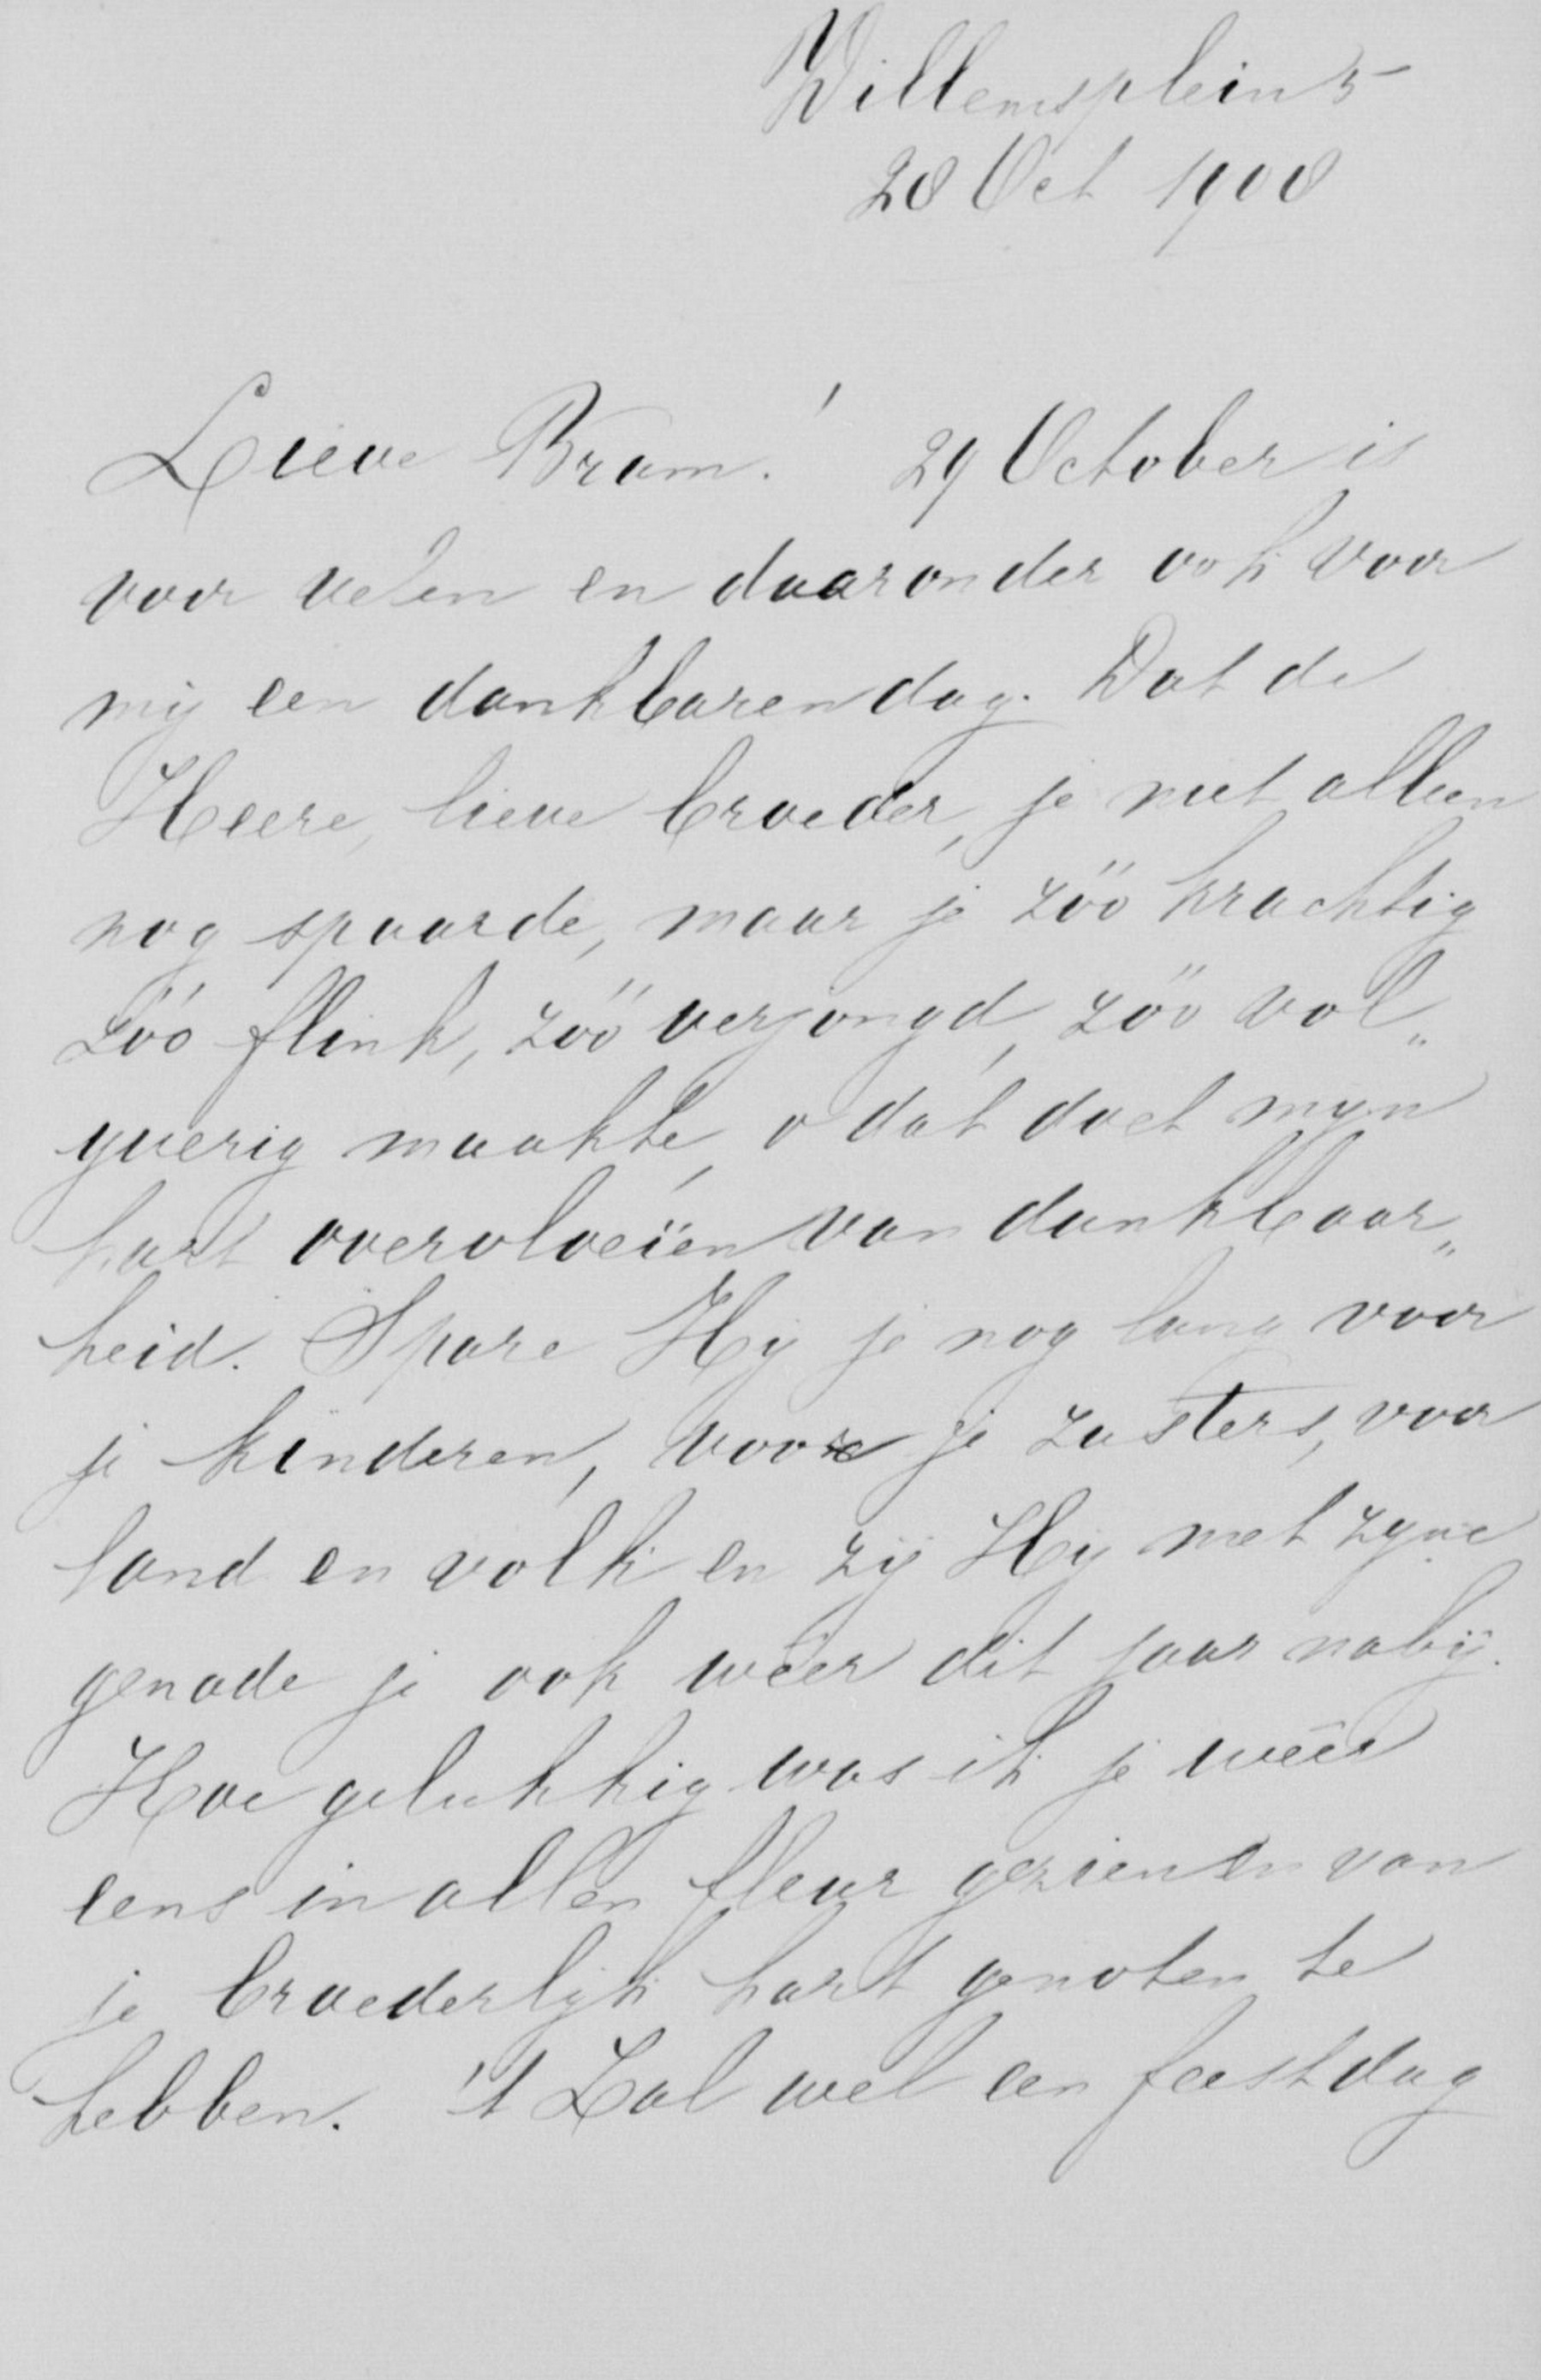 Willemsplein 5
28 Oct 1908
Lieve Bram! 29 October is
voor velen en daaronder ook voor
mij een dankbaren dag. Dat de
Heere, lieve broeder, je niet alleen
nog spaarde, maar je zóó krachtig
zóó flink, zóó verjongd, zóó vol„
yverig maakte, o dat doet myn
hart overvloeien van dankbaar„
heid. Spare Hij je nog lang voor
je kinderen, voor je zusters, voor
land en volk en zij Hij met zyne
genade je ook weer dit jaar nabij.
Hoe gelukkig was ik je wéér
eens in allen fleur gezien en van
je broederlijk hart genoten te
hebben. 't Zal wel een feestdag